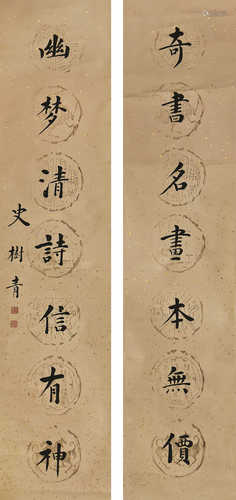 奇書名畫本無價
幽梦清詩信有神
史樹青